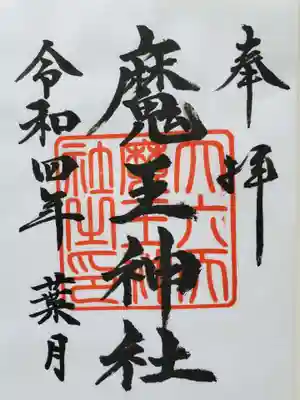 奉拝
魔王神社
令和四年 葉月